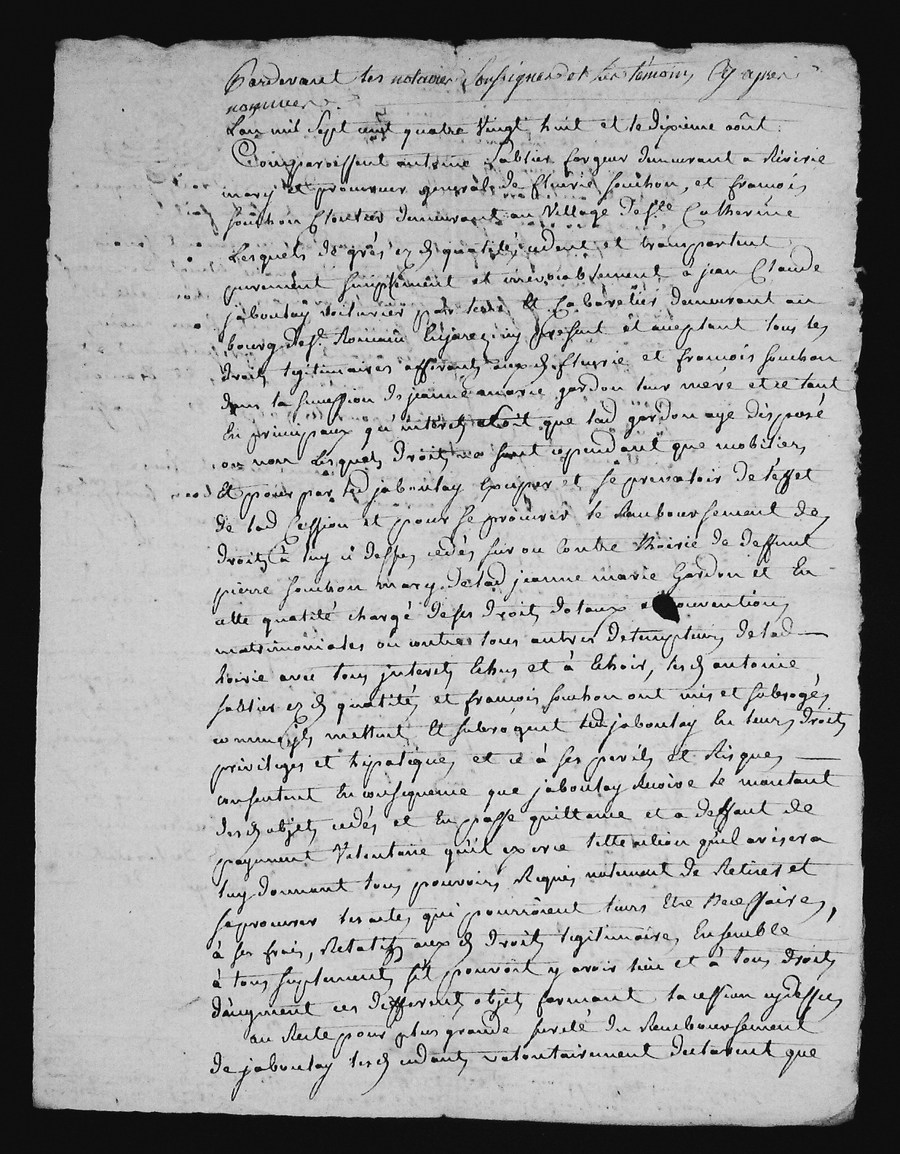 Pardevant les notaires soussignes et les témoins cy apres
nommes.
Lan mil sept cent quatre vingt huit et le dixieme août
Comparoissent antoine sablier forgeur demeurant a Riverie
mary et procureur general de fleurie souchon, et francois
souchon cloutier demeurant au village de ste Catherine
Lesquels de grès ez d qualités cedent et transportent
purement simplement et irrévocablement a jean Claude
jaboulay voiturier par terre et Cabaretier demeurant au
bourg de st Romain en jarez icy present et aceptant tous les
droits legitimaires afferants aux d fleurie et francois souchon
dans la sucession de jeanne marie gardon leur mere et ce tant
en principaux qu'interets soit que lad gardon aye disposé
ou non lesquels droits ne sont cependant que mobiliers
Et pour par led jaboulay exciper et se prevaloir de l'effet
de lad Cession et pour se procurer le Rembourssement des
droits à luy ci dessus cedés sur ou contre l'hoirie de deffunt
pierre souchon mary de lad jeanne marie Gardon et en
cette qualité chargé de ses droits dotaux et conventions
matrimoniales ou contre tous autres detempteurs de lad
hoirie avec tous interets echus et à echoir, les d antoine
sablier ez d qualités et francois souchon ont mis et subrogés
comme ils mettent et subrogent led jaboulay en leurs droits
privileges et hipoteques et ce à ses perils et Risques
consentent en consequence que jaboulay Recoive le montant
des d objets cedés et en passe quittance et a deffaut de
payement volontaire qu'il exerce telle action qu'il avisera
luy donnant tous pouvoirs Requis notament de Retirer et
se procurer les actes qui pourroient leurs etre necessaires,
à ses frais, Relatifs aux d droits legitimaires ensemble
à tous suplements s'il pouvoit y avoir lieu et à tous droits
d'augment ces differents objets formant la cession cy dessus
au Reste pour plus grande sureté du Rembourssement
de jaboulay les d cedants volontairement declarent que